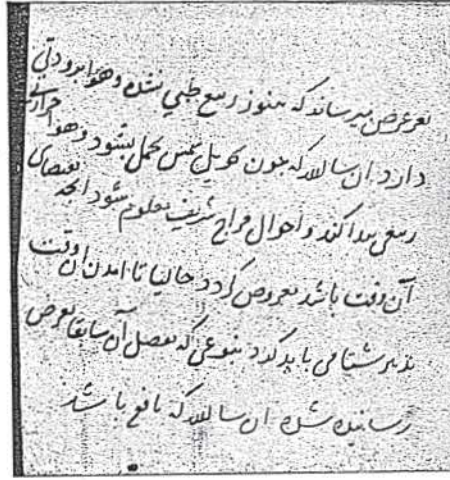 بعرض میرساند که هنوز ربیع طبی نشده و هوا برودتی
دارد ان شاالله که چون تحویل شمس بحمل بشود و هوا حرارتی
ربیعی پیدا کند و احوال مزاج شریف معلوم شود آنچه مقتضای
آن وقت باشد معروض گردد حالیا تا آمدن آن وقت
تدبیر شتا می باید کرد بنوعی که تفصیل آن سابقا بعرض
رسانیده شده ان شاالله که نافع باشد